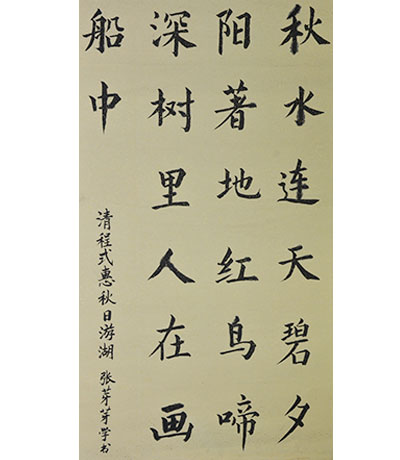 秋水连天碧夕
阳著地红鸟啼
深树里人在画
船中
清程式惠秋日游湖 张芽芽学书